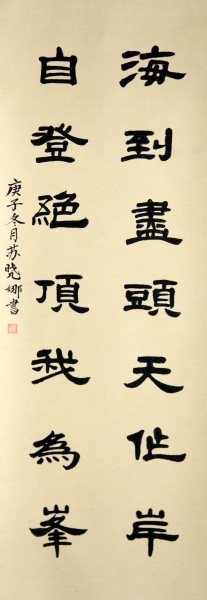 海到盡頭天作岸
自登絕頂我為峯
庚子冬月苏晓娜書